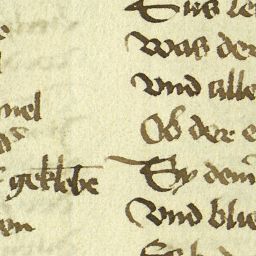 nel
geklebē
en
Sus le
Was der
Vnd alle
Ob der e
Sy dem
Vnd blu